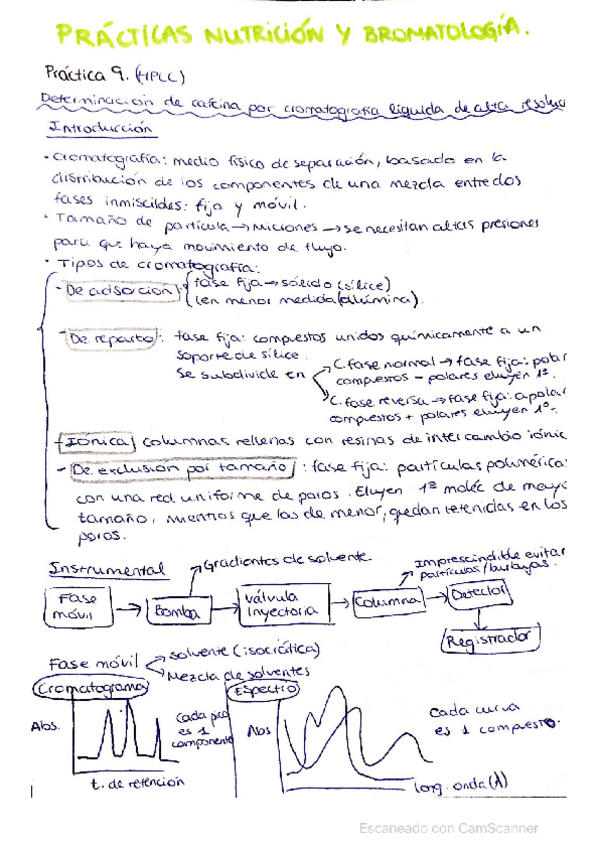 PRÁCTICAS NUTRICIÓN Y BROMATOLOGÍA.
Práctica 9. (HPLC)
Determinación de cafeína por cromatografía líquida de alta resoluc
Introducción
· Cromatografía: medio físico de separación, basado en la
distribución de los componentes de una mezcla entre dos
fases inmiscibles: fija y móvil.
· Tamaño de partícula → micrones → se necesitan altas presiones
para que haya movimiento de flujo.
· Tipos de cromatografía:
- De adsorción: fase fija → sólido (sílice)
(en menor medida (alúmina).
- De reparto: fase fija: compuestos unidos químicamente a un
soporte de sílice.
Se subdivide en
C. fase normal → fase fija: polar
compuestos - polares eluyen 1º.
C. fase reversa → fase fija: apolar
compuestos + polares eluyen 1º.
- Iónica columnas rellenas con resinas de intercambio iónic
- De exclusión por tamaño: fase fija: partículas polimérica
con una red uniforme de poros. Eluyen 1ª moléc de mayo
tamaño, mientras que las de menor, quedan retenidas en los
poros.
Instrumental
Gradientes de solvente
Imprescindible evitar
partículas/burbujas.
Fase móvil → Bomba → Válvula inyectora → Columna → Detector
Registrador
Fase móvil
solvente (isocrática)
Mezcla de solventes
Cromatograma
Abs.
Cada pico
es 1
componente
t. de retención
Espectro
Abs
Cada curva
es 1 compuesto.
long. onda (λ)
Escaneado con CamScanner